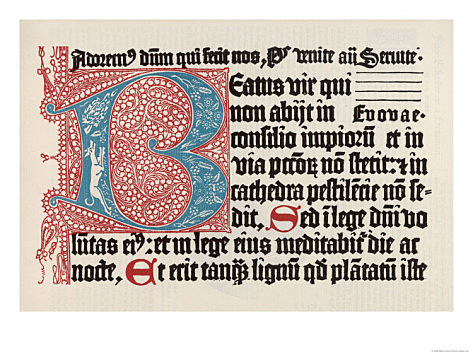 Adorem⁹ dn̄m qui fecit nos, Ps̄ venite añ Seruite·
Beatus vir qui
non abijt in Evovae·
consilio impiorū et in
via pc̄torꝝ nō stetit: ⁊ in
cathedra pestilēcie nō se-
dit, Sed ī lege dn̄i vo
lūtas ei⁹: et in lege eius meditabit̄ die ac
nocte, Et erit tanꝗ̄ lignū qd̄ plātatū iste